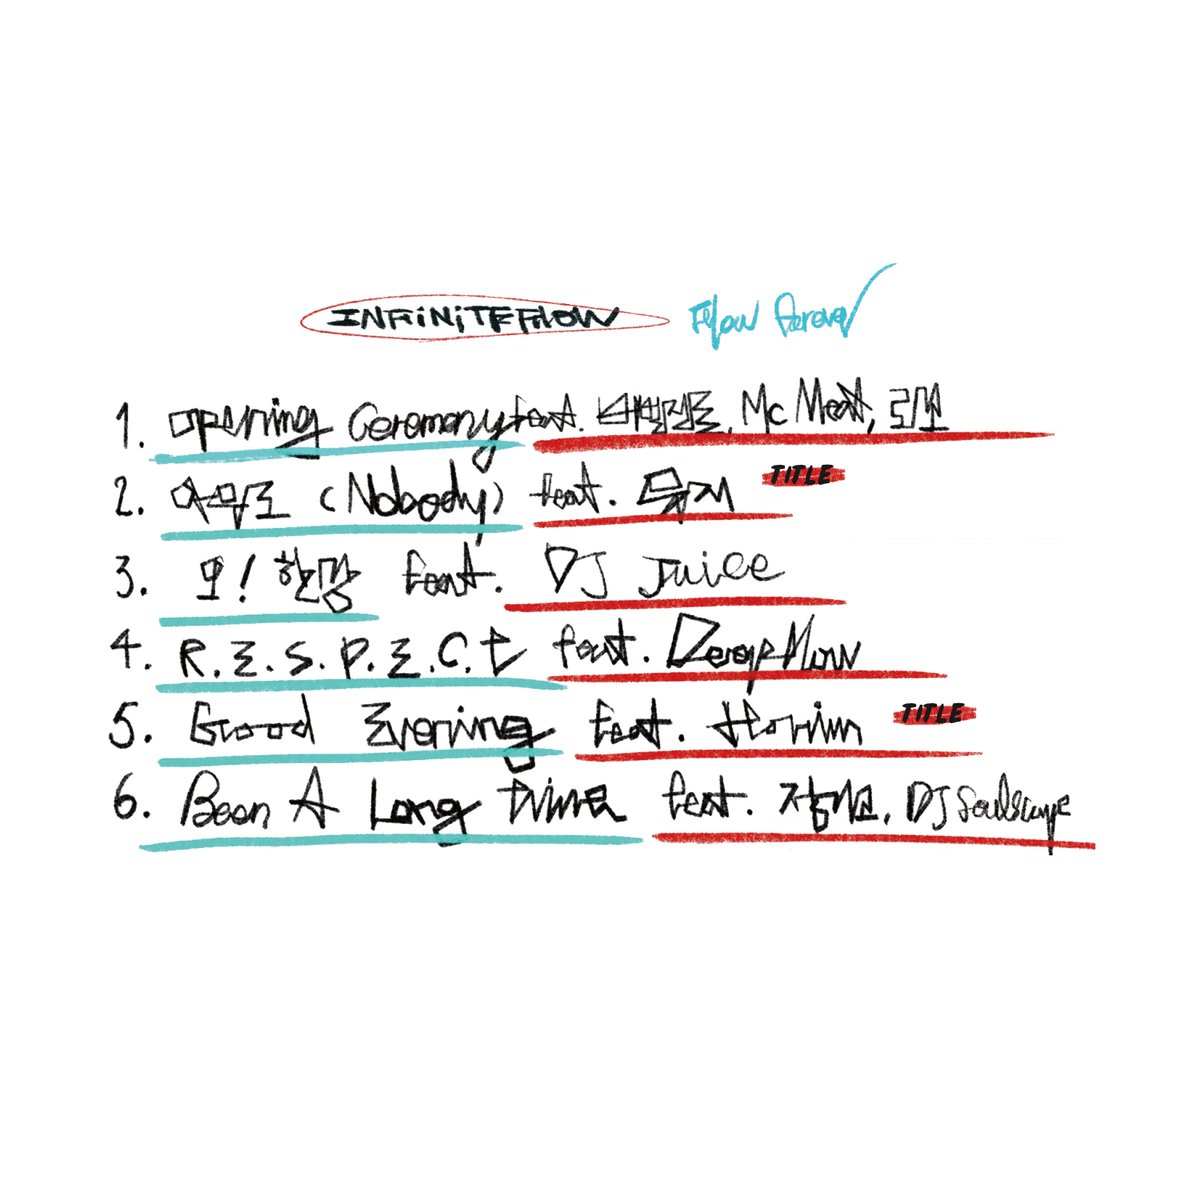 INFINITEFLOW Flow forever
1. Opening Ceremony feat. 버벌진트, Mc Meta,
2. 아무도 (Nobody) feat. 뮤지 TITLE
3. 오! 한강 feat. DJ Juice
4. R.E.S.P.E.C.t feat. Deepflow
5. Good Evening feat. Horim TITLE
6. Been A Long Time feat. DJ Soulscape